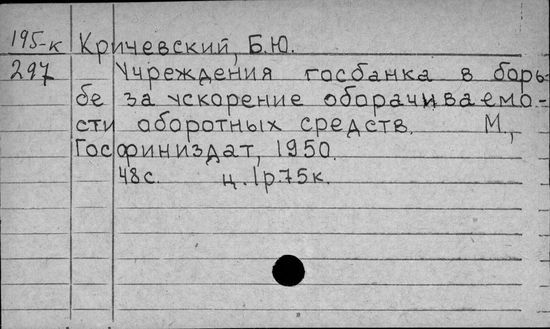 195-к Кричевский, Б.Ю.
297 Учреждения госбанка в борь-
бе за ускорение оборачиваемо-
сти оборотных средств. М.,
Госфиниздат, 1950.
48с. ц. 1р.75к.